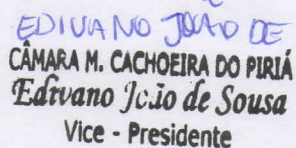 EDIVANO JOÃO DE
CÂMARA M. CACHOEIRA DO PIRIÁ
Edivano João de Sousa
Vice - Presidente